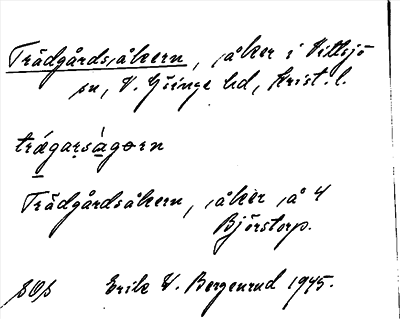 Trädgårdsåkern, åker i Vittsjö
sn, V. Göinge hd, Krist. l.
trágarsàgorn
Trädgårdsåkern, åker å 4
Björstorp.
Erik V. Bergenrud 1945.